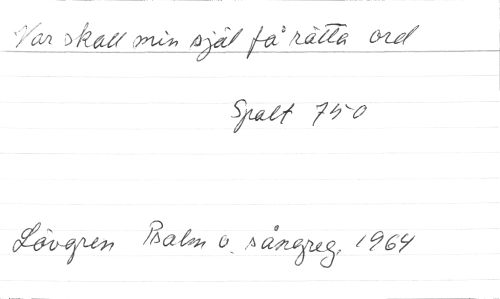 Var skall min själ få rätta ord
Spalt 750
Lövgren Psalm o. sångreg. 1964